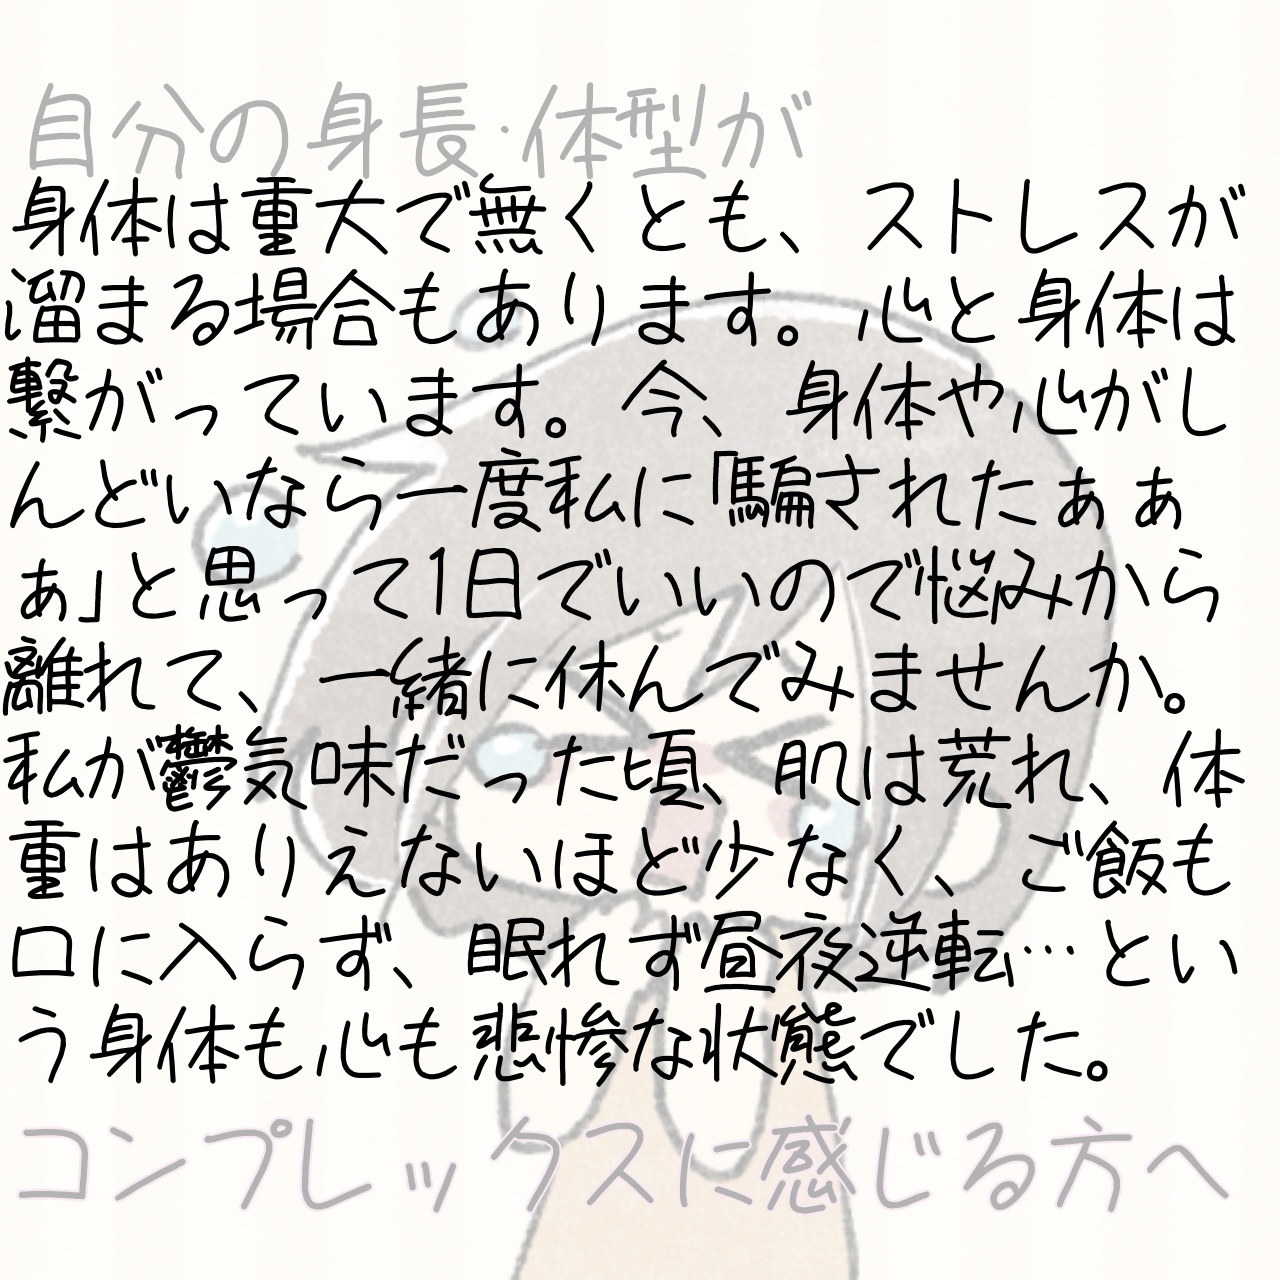 自分の身長·体型が
身体は重大で無くとも、ストレスが
溜まる場合もあります。心と身体は
繋がっています。今、身体や心がし
んどいなら一度私に「騙されたぁぁ
ぁ」と思って1日でいいので悩みから
離れて、一緒に休んでみませんか。
私が鬱気味だった頃、肌は荒れ、体
重はありえないほど少なく、ご飯も
口に入らず、眠れず昼夜逆転…とい
う身体も心も悲惨な状態でした。
コンプレックスに感じる方へ